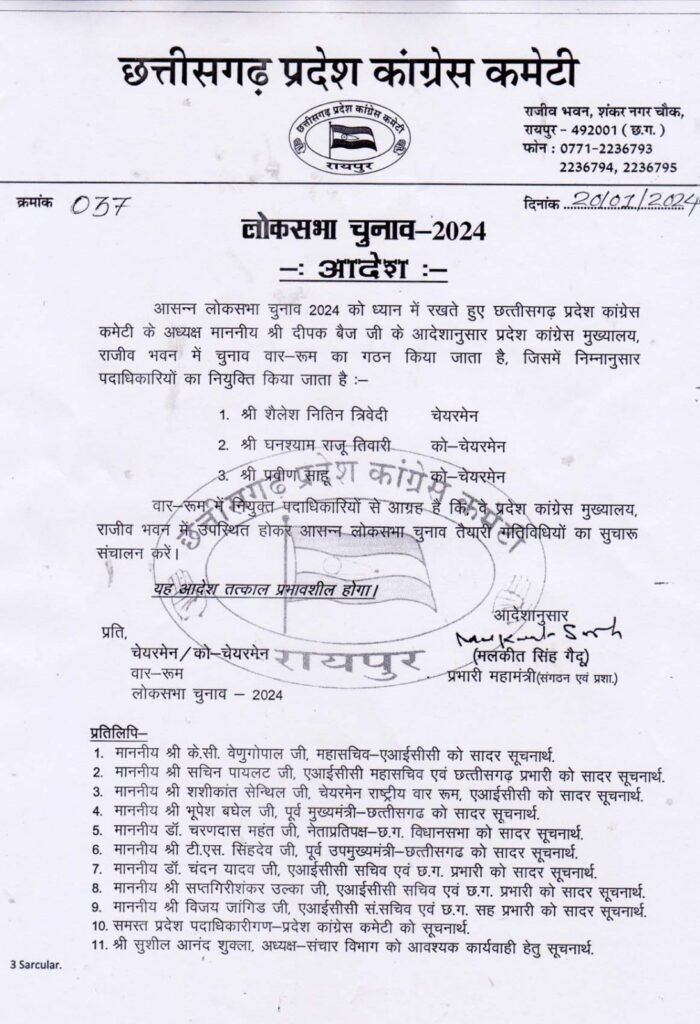 छत्तीसगढ़ प्रदेश कांग्रेस कमेटी
छत्तीसगढ़ प्रदेश कांग्रेस कमेटी
रायपुर
राजीव भवन, शंकर नगर चौक,
रायपुर - 492001 ( छ.ग. )
फोन : 0771-2236793
2236794, 2236795
क्रमांक 037
दिनांक 20/01/2024
लोकसभा चुनाव–2024
–: आदेश :–
आसन्न लोकसभा चुनाव 2024 को ध्यान में रखते हुए छत्तीसगढ़ प्रदेश कांग्रेस
कमेटी के अध्यक्ष माननीय श्री दीपक बैज जी के आदेशानुसार प्रदेश कांग्रेस मुख्यालय,
राजीव भवन में चुनाव वार–रूम का गठन किया जाता है, जिसमें निम्नानुसार
पदाधिकारियों का नियुक्ति किया जाता है :–
1. श्री शैलेश नितिन त्रिवेदी चेयरमेन
2. श्री घनश्याम राजू तिवारी को–चेयरमेन
3. श्री प्रवीण साहू को–चेयरमेन
वार–रूम में नियुक्त पदाधिकारियों से आग्रह है कि, वे प्रदेश कांग्रेस मुख्यालय,
राजीव भवन में उपस्थित होकर आसन्न लोकसभा चुनाव तैयारी गतिविधियों का सुचारू
संचालन करें।
छत्तीसगढ़ प्रदेश कांग्रेस कमेटी
रायपुर
यह आदेश तत्काल प्रभावशील होगा।
आदेशानुसार
(मलकीत सिंह गैदू)
प्रभारी महामंत्री(संगठन एवं प्रशा.)
प्रति,
चेयरमेन/को–चेयरमेन
वार–रूम
लोकसभा चुनाव – 2024
प्रतिलिपि–
1. माननीय श्री के.सी. वेणुगोपाल जी, महासचिव–एआईसीसी को सादर सूचनार्थ.
2. माननीय श्री सचिन पायलट जी, एआईसीसी महासचिव एवं छत्तीसगढ़ प्रभारी को सादर सूचनार्थ.
3. माननीय श्री शशीकांत सेन्थिल जी, चेयरमेन राष्ट्रीय वार रूम, एआईसीसी को सादर सूचनार्थ.
4. माननीय श्री भूपेश बघेल जी, पूर्व मुख्यमंत्री–छत्तीसगढ को सादर सूचनार्थ.
5. माननीय डॉ. चरणदास महंत जी, नेताप्रतिपक्ष–छ.ग. विधानसभा को सादर सूचनार्थ.
6. माननीय श्री टी.एस. सिंहदेव जी, पूर्व उपमुख्यमंत्री–छत्तीसगढ को सादर सूचनार्थ.
7. माननीय डॉ. चंदन यादव जी, एआईसीसी सचिव एवं छ.ग. प्रभारी को सादर सूचनार्थ.
8. माननीय श्री सप्तगिरीशंकर उल्का जी, एआईसीसी सचिव एवं छ.ग. प्रभारी को सादर सूचनार्थ.
9. माननीय श्री विजय जांगिड जी, एआईसीसी सं.सचिव एवं छ.ग. सह प्रभारी को सादर सूचनार्थ.
10. समस्त प्रदेश पदाधिकारीगण–प्रदेश कांग्रेस कमेटी को सूचनार्थ.
11. श्री सुशील आनंद शुक्ला, अध्यक्ष–संचार विभाग को आवश्यक कार्यवाही हेतु सूचनार्थ.
3 Sarcular.